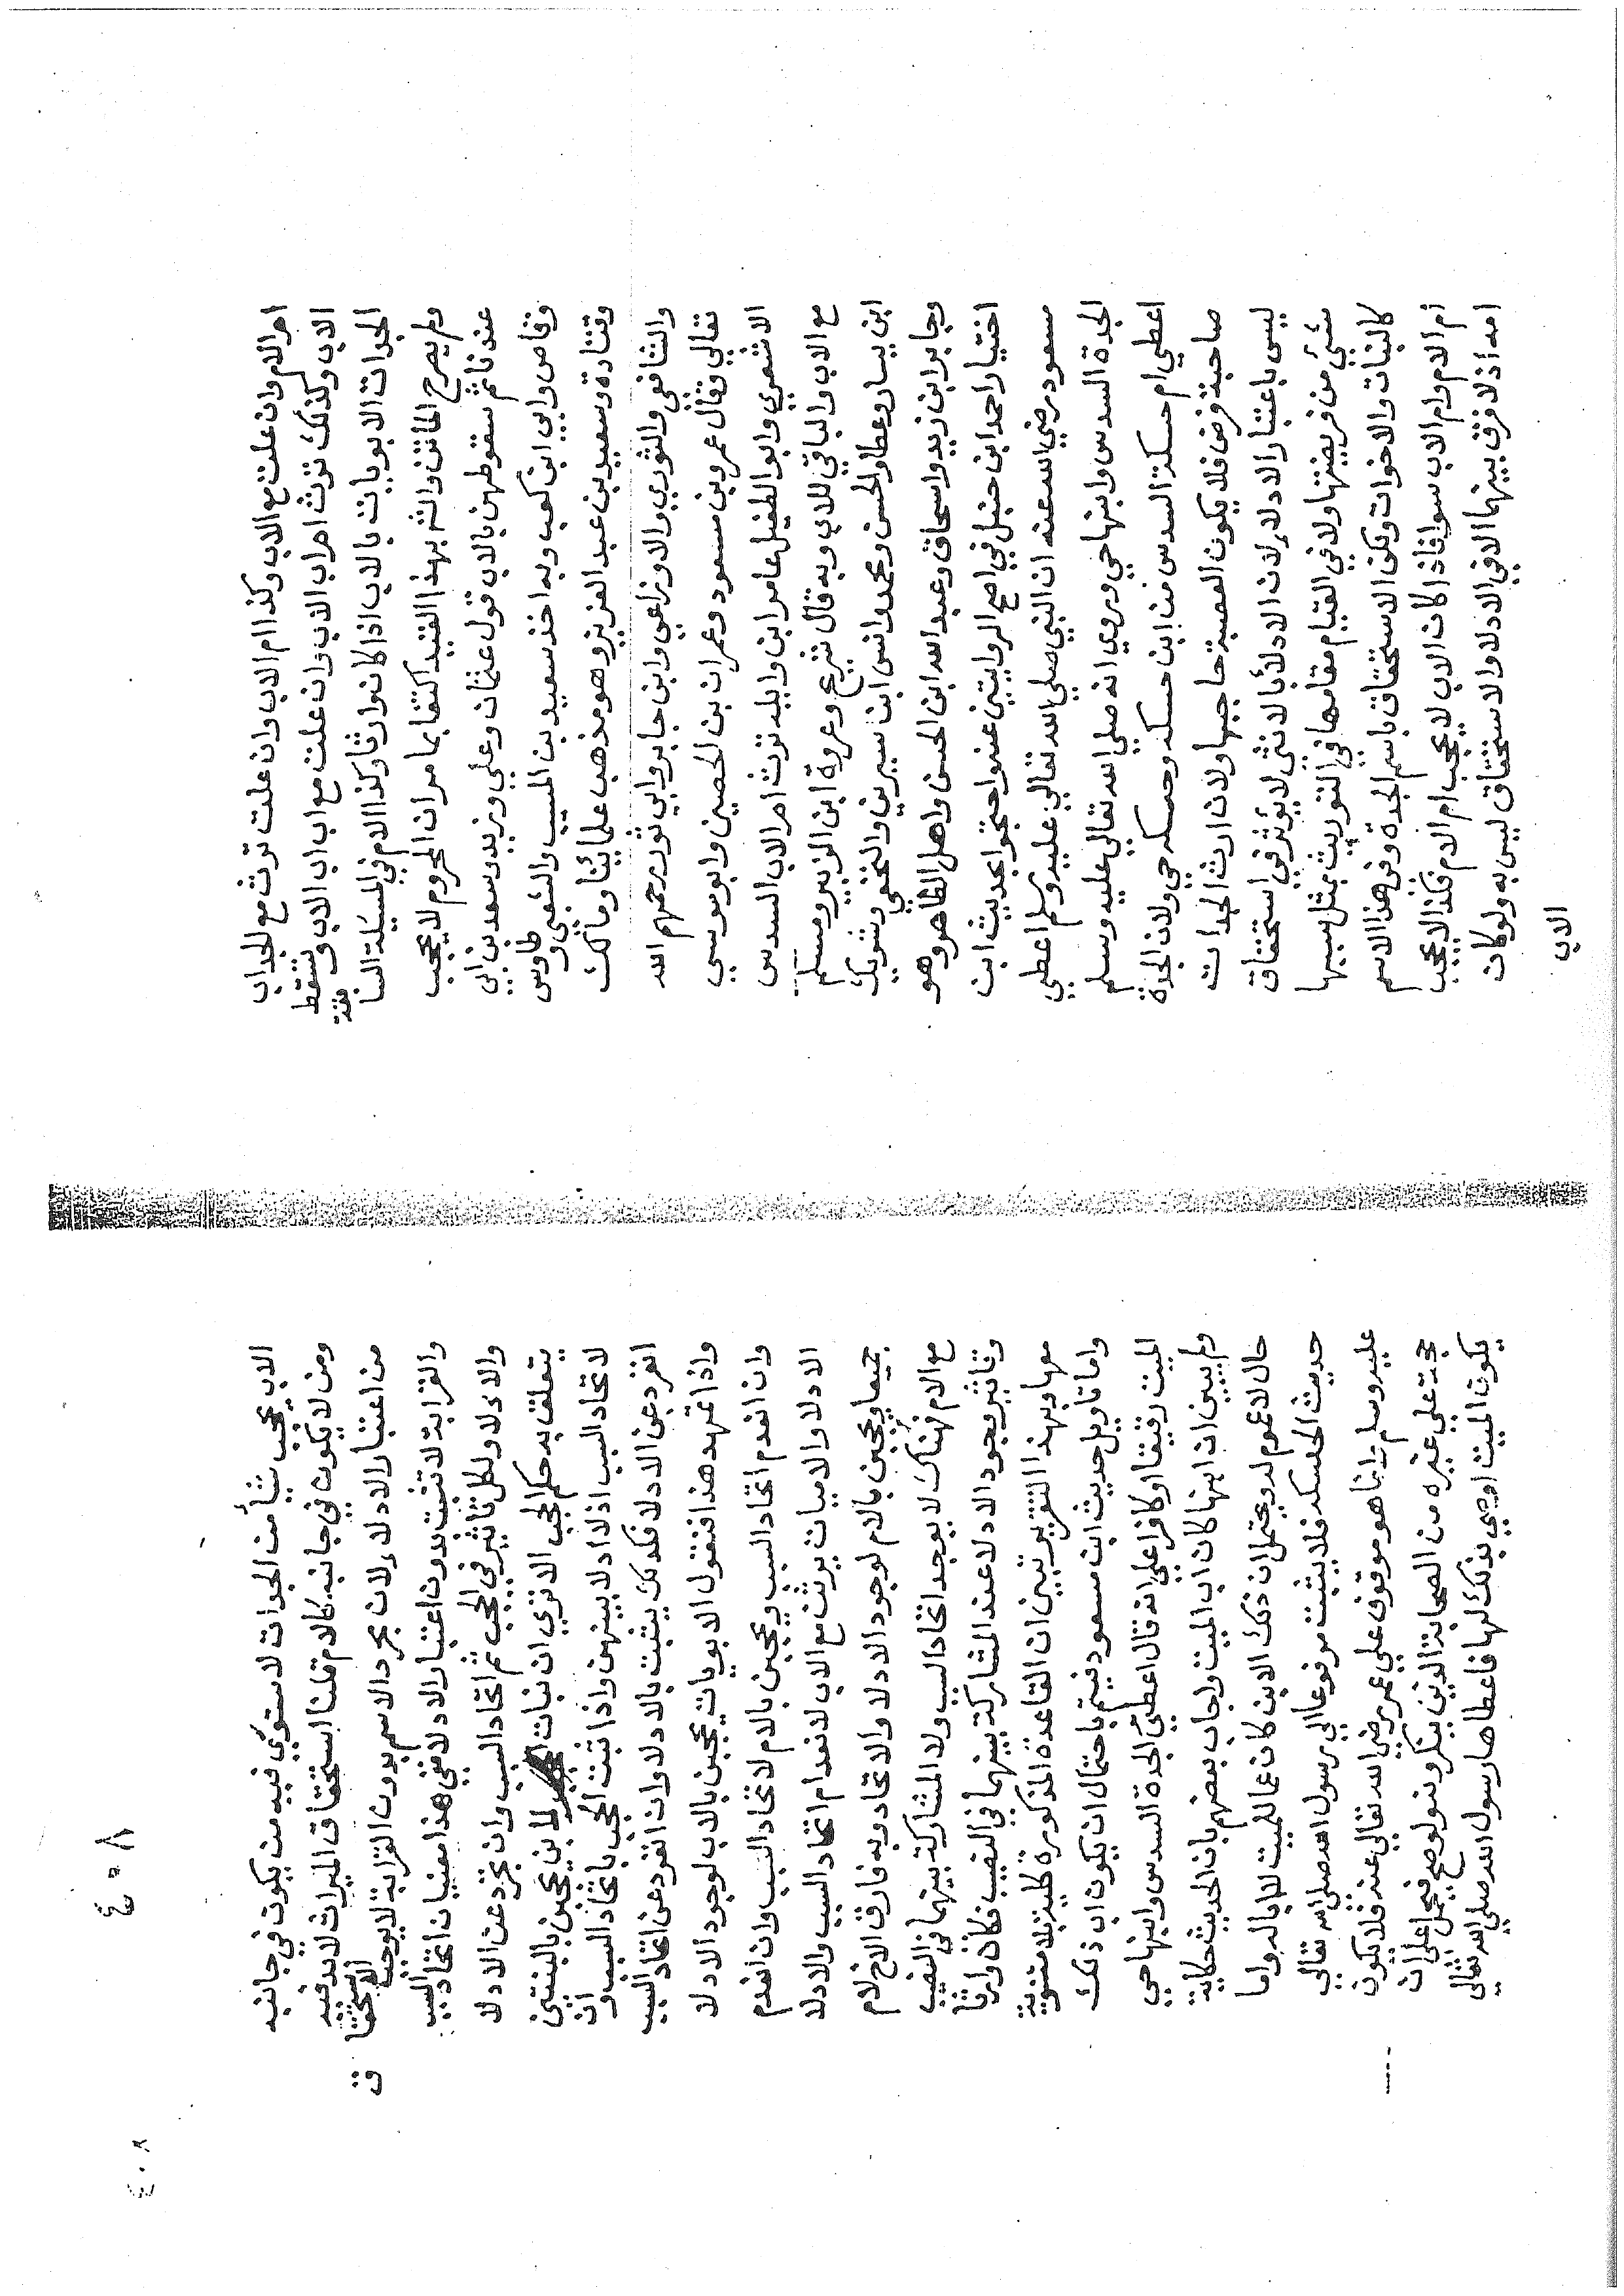 ام الام وان علت مع الاب وكذا ام الاب وان علت ترث مع الجداب
الاب وكذلك ترث ام اب الاب وان علت مع اب اب الاب وتسقط
الجدات الابويات بالاب اذا كان وارثا وكذا الام في المسئلة السا
بقة
ولم يصرح المأتن والشر بهذا القيد اكتفا بما مر ان المحروم لا يحجب
عندنا ثم سقوطهن بالاب قول عثمان وعلي وزيد وسعد بن ابي
وقاص وابي ابن كعب وبه اخذ سعيد بن المسيب والشعبي و طاوس
وقتادة وسعيد بن عبد العزيز وهو مذهب علمائنا ومالك
والشافعي والثوري والاوزاعي وابن جابر وابي ثور رحمهم الله
تعالي وقال عمر وبن مسعود وعمران بن الحصين وابو موسي
الاشعري وابو الطفيل عامر ابن واثله ترث ام الاب السدس
مع الاب والباقي للاب وبه قال شريح وعروة ابن الزبير ومسلم
ابن يسار وعطا والحسن ومحمد وانس ابنا سيرين والنخعي وشريك
وجابر ابن زيد واسحاق وعبد الله ابن الحسن واهل الظاهر وهو
اختيار احمد ابن حنبل في اصح الروايتين عنه واحتجوا بحديث ابن
مسعود رضي الله عنه ان النبي صلي الله تعالي عليه وسلم اعطي
الجدة السدس وابنها حي وروي انه صلي الله تعالي عليه وسلم
اعطي ام حسكة السدس من ابن حسكه وحسكه حي ولان الجدة
صاحبة فرض فلا يكون العصبة حاجبها ولان ارث الجدات
ليس باعتبار الادلاء لان الادلاء بالانثي لا يؤثر في استحقاق
شيئ من فريضتها ولا في القيام مقامها في التوريث بمثل سببها
كالبنات والاخوات ولكن الاستحقاق باسم الجدة وفي هذا الاسم
ام الام وام الاب سوا فاذا كان الاب لا يحجب ام الام فكذا لا يحجب
امه اذ لا فرق بينهما الا في الادلا والاستحقاق ليس به ولو كان
الاب
٤٠٨
الاب يحجب شيأ من الجدات لاستوي فيه من يكون في جانبه
ومن لا يكون في جانبه كالام قلنا استحقاق الميراث لا بد فيه
من اعتبار الادلاء لان مجرد الاسم بدون القرابة لا يوجب الاستحقا
ق
والقرابة لا تثبت بدون اعتبار الادلا ففي هذا معنيان اتحاد السبب
والادلا ولكل تأثير في الحجب ثم اتحاد السبب وان تجرد عن الادلا
يتعلق به حكم الحجب الا تري ان بنات الابن يحجبن بالبنتين
لاتحاد السبب اذ لا ادلا بينهن واذا ثبت الحجب باتحاد السبب و ان
انفرد عن الادلا فكذلك يثبت بالادلا وان انفرد عن اتحاد السبب
واذا تمهد هذا فنقول الابويات يحجبن بالاب لوجود الادلا
وان انعدم اتحاد السبب ويحجبن بالام لاتحاد السبب وان انعدم
الادلا والاميات يرثن مع الاب لانعدام اتحاد السبب والادلا
جميعا ويحجبن بالام لوجود الادلا والاتحاد وبه فارق الاخ لام
مع الام فهناك لا يوجد اتحاد السبب ولا المشاركة بينهما في النصيب
وتأثير يجود الادلا عند المشاركة بينهما في النصيب فكان وارثا
معها وبهذا التقرير تبين ان القاعدة المذكورة كلية بلا مثنوية
واما تأويل حديث ابن مسعود فيتم باحتمال ان يكون اب ذلك
الميت رقيقا او كافرا علي انه قال اعطي الجدة السدس وابنها حي
ولم يبين ان ابنها كان اب الميت واجاب بعضهم بان الحديث حكاية
حال لا عموم له ويحتمل ان ذلك الابن كان عما للميت لا ابا له واما
حديث الحسكه فلا يثبت مرفوعا الي رسول الله صلي الله تعالي
عليه وسلم وانما هو موقوف علي عمر رضي الله تعالي عنه فلا يكون
حجة علي غيره من الصحابة الذين ينكرونه ولو صح فيحمل علي ان
يكون الميت اوصي بذلك لها فاعطاها رسول الله صلي الله تعالي